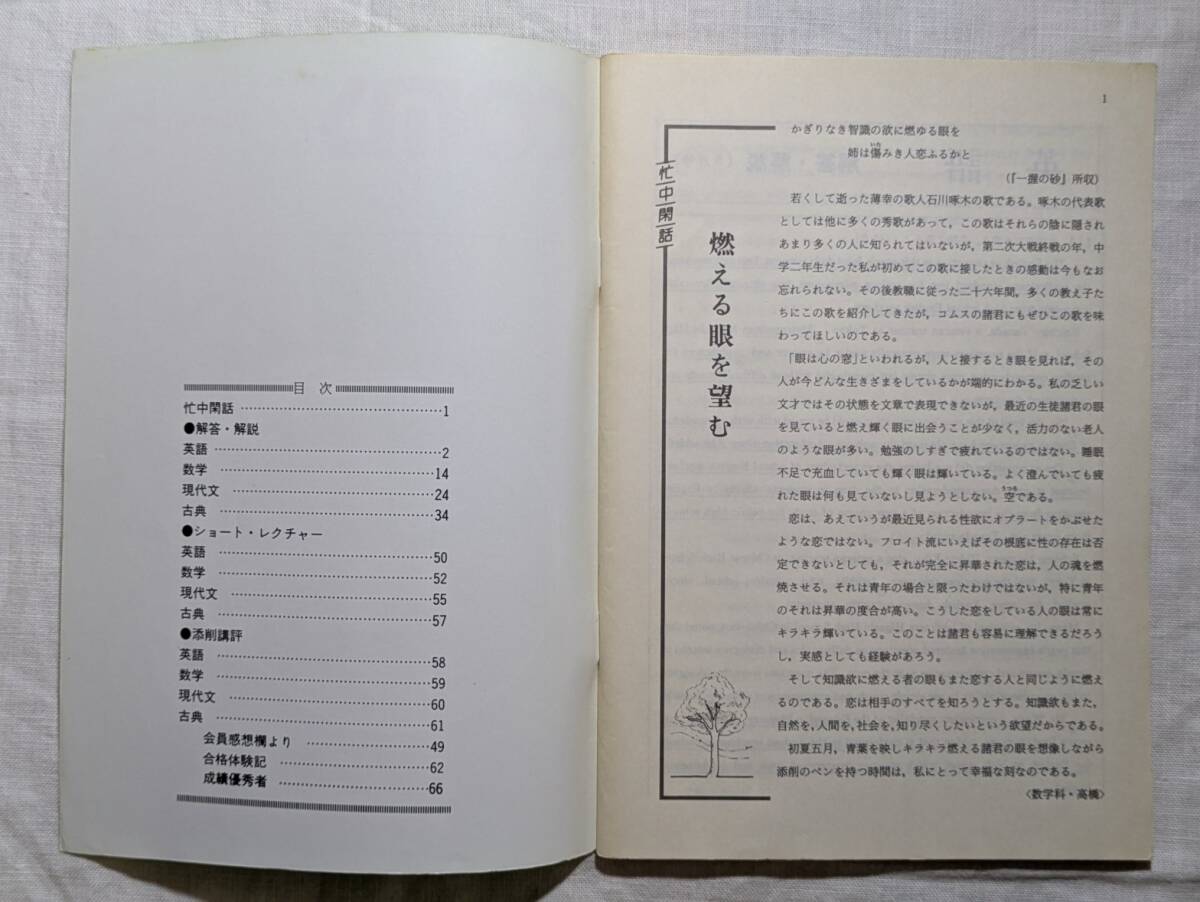 目次
忙中閑話 …………………………………1
●解答・解説
英語 …………………………………2
数学 …………………………………14
現代文 …………………………………24
古典 …………………………………34
●ショート・レクチャー
英語 …………………………………50
数学 …………………………………52
現代文 …………………………………55
古典 …………………………………57
●添削講評
英語 …………………………………58
数学 …………………………………59
現代文 …………………………………60
古典 …………………………………61
会員感想欄より …………………49
合格体験記 …………………62
成績優秀者 …………………66
1
忙中閑話
燃える眼を望む
かぎりなき智識の欲に燃ゆる眼を
姉は傷みき人恋ふるかと
(『一握の砂』所収)
若くして逝った薄幸の歌人石川啄木の歌である。啄木の代表歌
としては他に多くの秀歌があって，この歌はそれらの陰に隠され
あまり多くの人に知られてはいないが，第二次大戦終戦の年，中
学二年生だった私が初めてこの歌に接したときの感動は今もなお
忘れられない。その後教職に従った二十六年間，多くの教え子た
ちにこの歌を紹介してきたが，コムスの諸君にもぜひこの歌を味
わってほしいのである。
「眼は心の窓」といわれるが，人と接するとき眼を見れば，その
人が今どんな生きざまをしているかが端的にわかる。私の乏しい
文才ではその状態を文章で表現できないが，最近の生徒諸君の眼
を見ていると燃え輝く眼に出会うことが少なく，活力のない老人
のような眼が多い。勉強のしすぎで疲れているのではない。睡眠
不足で充血していても輝く眼は輝いている。よく澄んでいても疲
れた眼は何も見ていないし見ようとしない。空である。
恋は、あえていうが最近見られる性欲にオブラートをかぶせた
ような恋ではない。フロイト流にいえばその根底に性の存在は否
定できないとしても，それが完全に昇華された恋は，人の魂を燃
焼させる。それは青年の場合と限ったわけではないが，特に青年
のそれは昇華の度合が高い。こうした恋をしている人の眼は常に
キラキラ輝いている。このことは諸君も容易に理解できるだろう
し，実感としても経験があろう。
そして知識欲に燃える者の眼もまた恋する人と同じように燃え
るのである。恋は相手のすべてを知ろうとする。知識欲もまた，
自然を，人間を，社会を，知り尽くしたいという欲望だからである。
初夏五月，青葉を映しキラキラ燃える諸君の眼を想像しながら
添削のペンを持つ時間は，私にとって幸福な刻なのである。
〈数学科・高橋〉